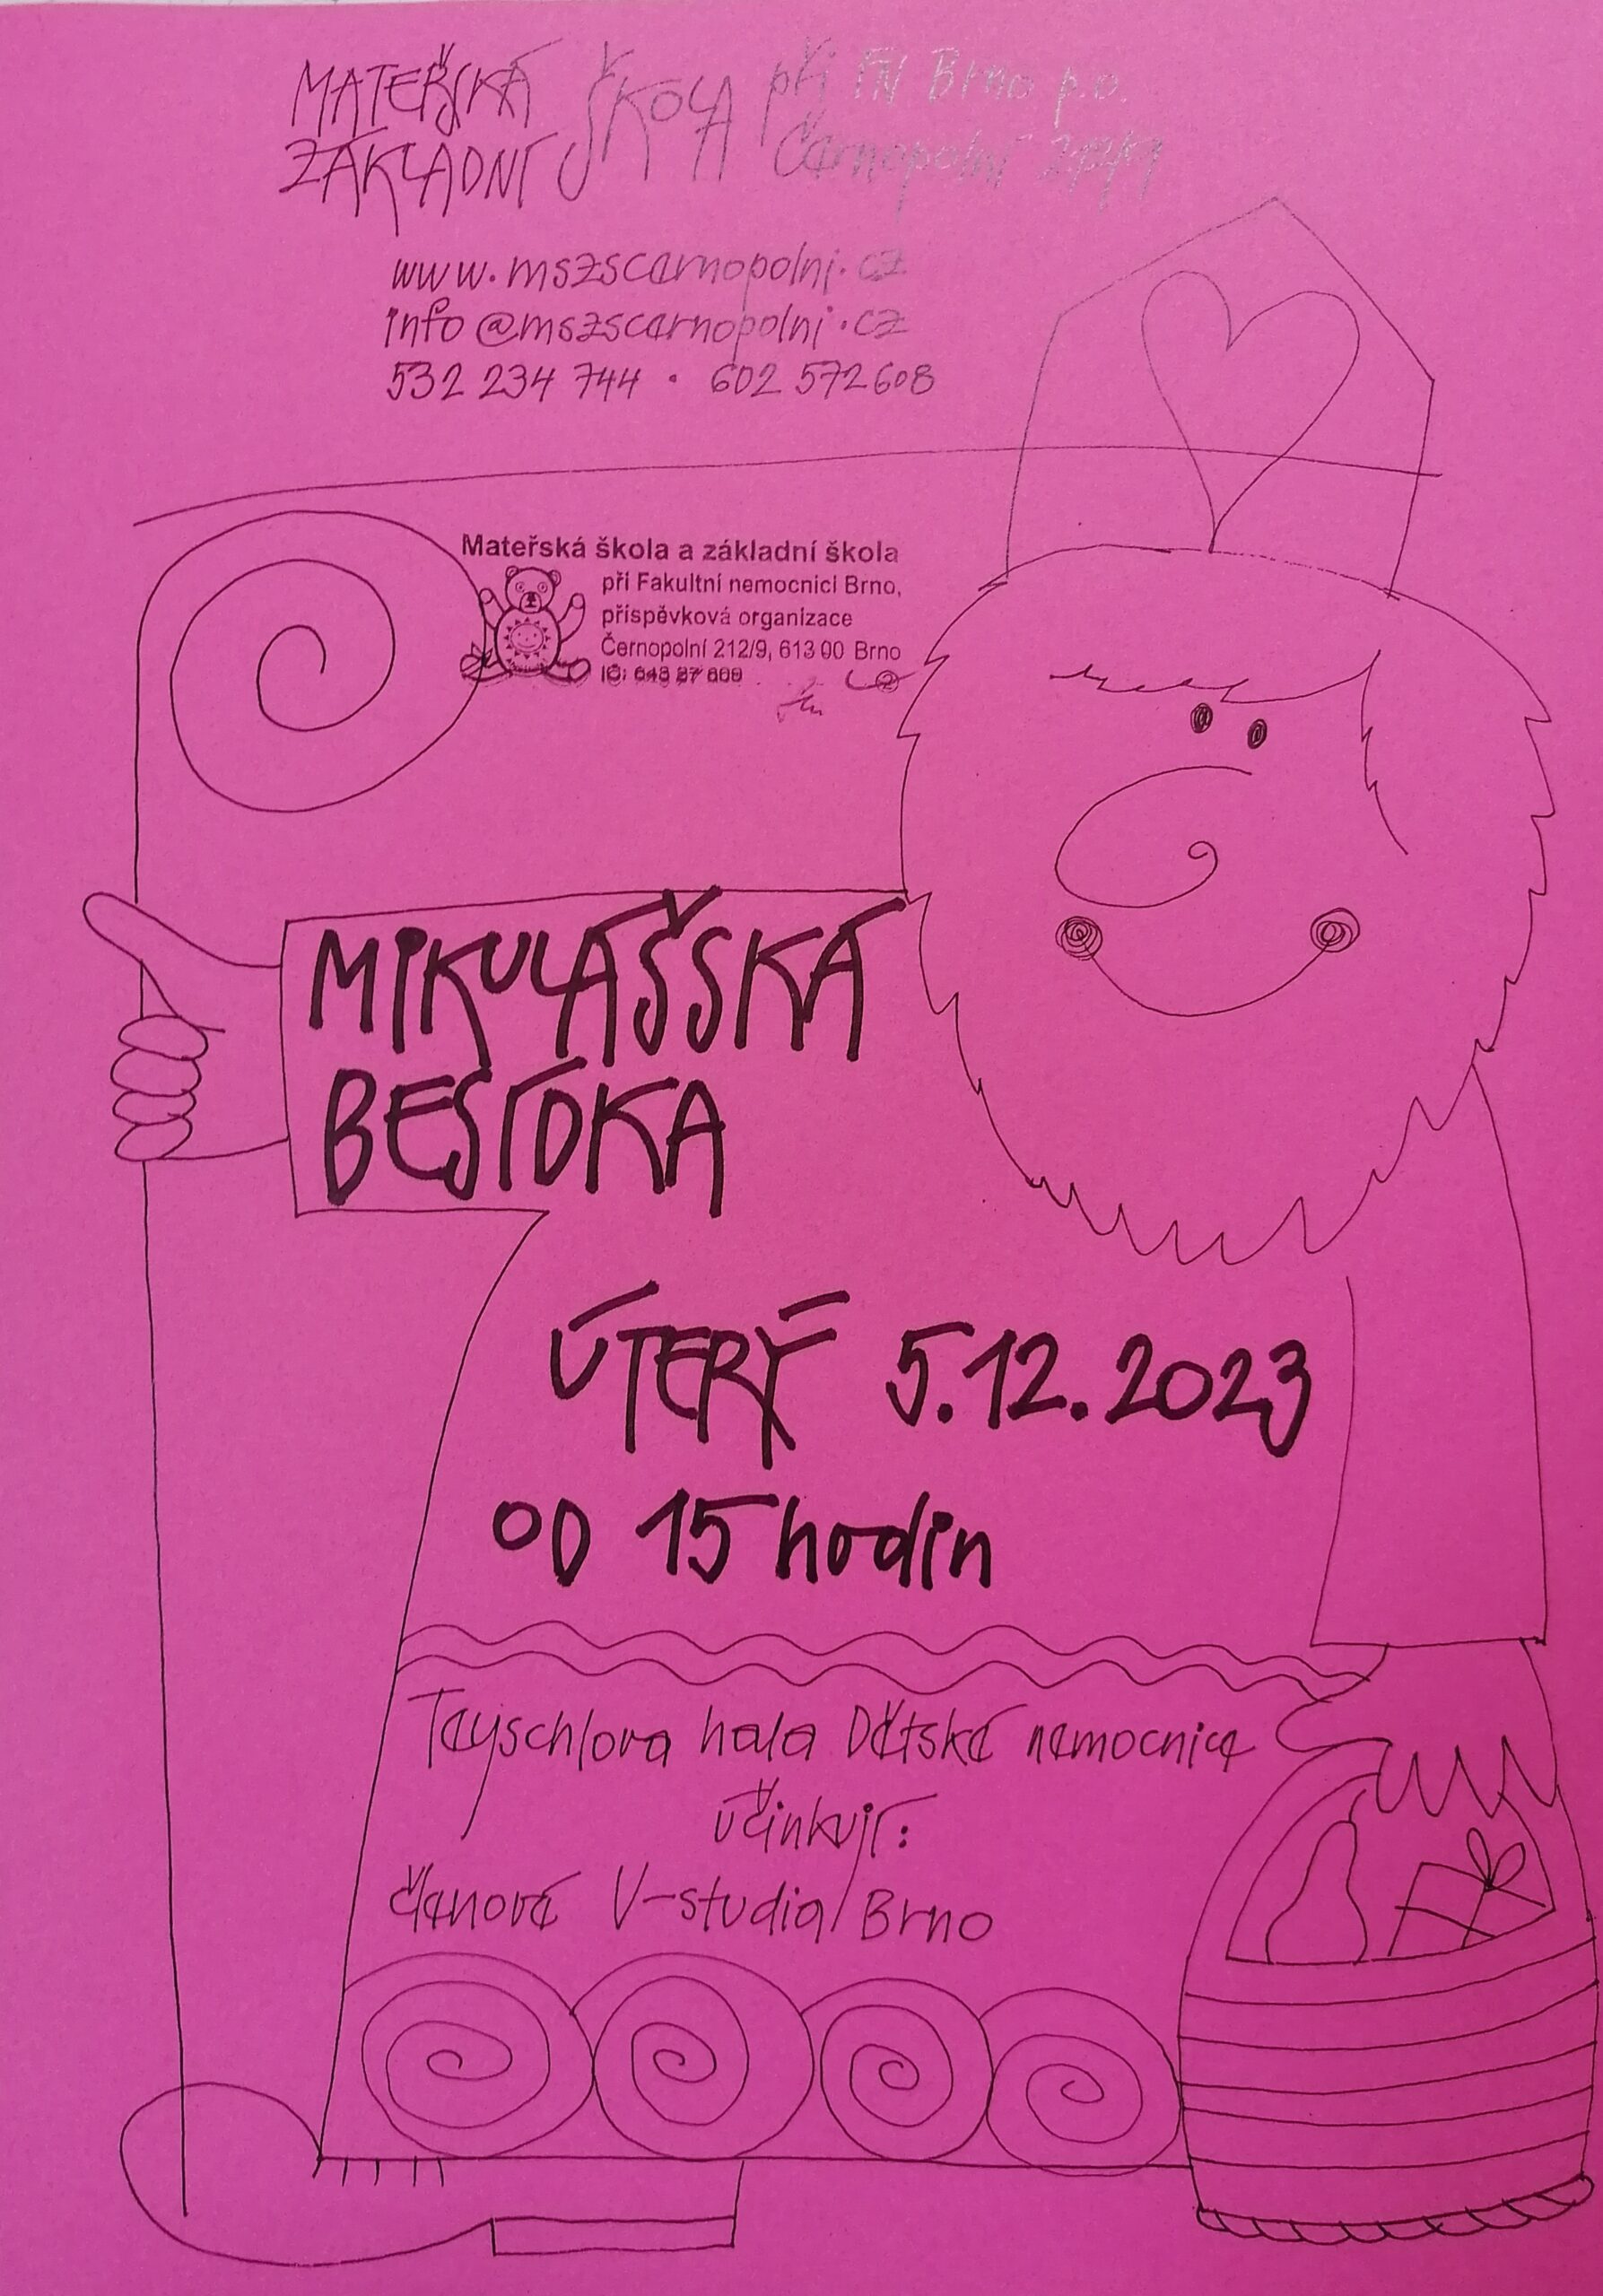 MATEŘSKÁ ŠKOLA při FN Brno p.o.
ZÁKLADNÍ Černopolní 212/9
www.mszscernopolni.cz
info@mszscernopolni.cz
532 234 744 · 602 572 608
Mateřská škola a základní škola
při Fakultní nemocnici Brno,
příspěvková organizace
Černopolní 212/9, 613 00 Brno
IČ:
MIKULÁŠSKÁ
BESÍDKA
ÚTERÝ 5.12.2023
OD 15 hodin
Teyschlova hala Dětské nemocnice
účinkují:
členové V-studia Brno